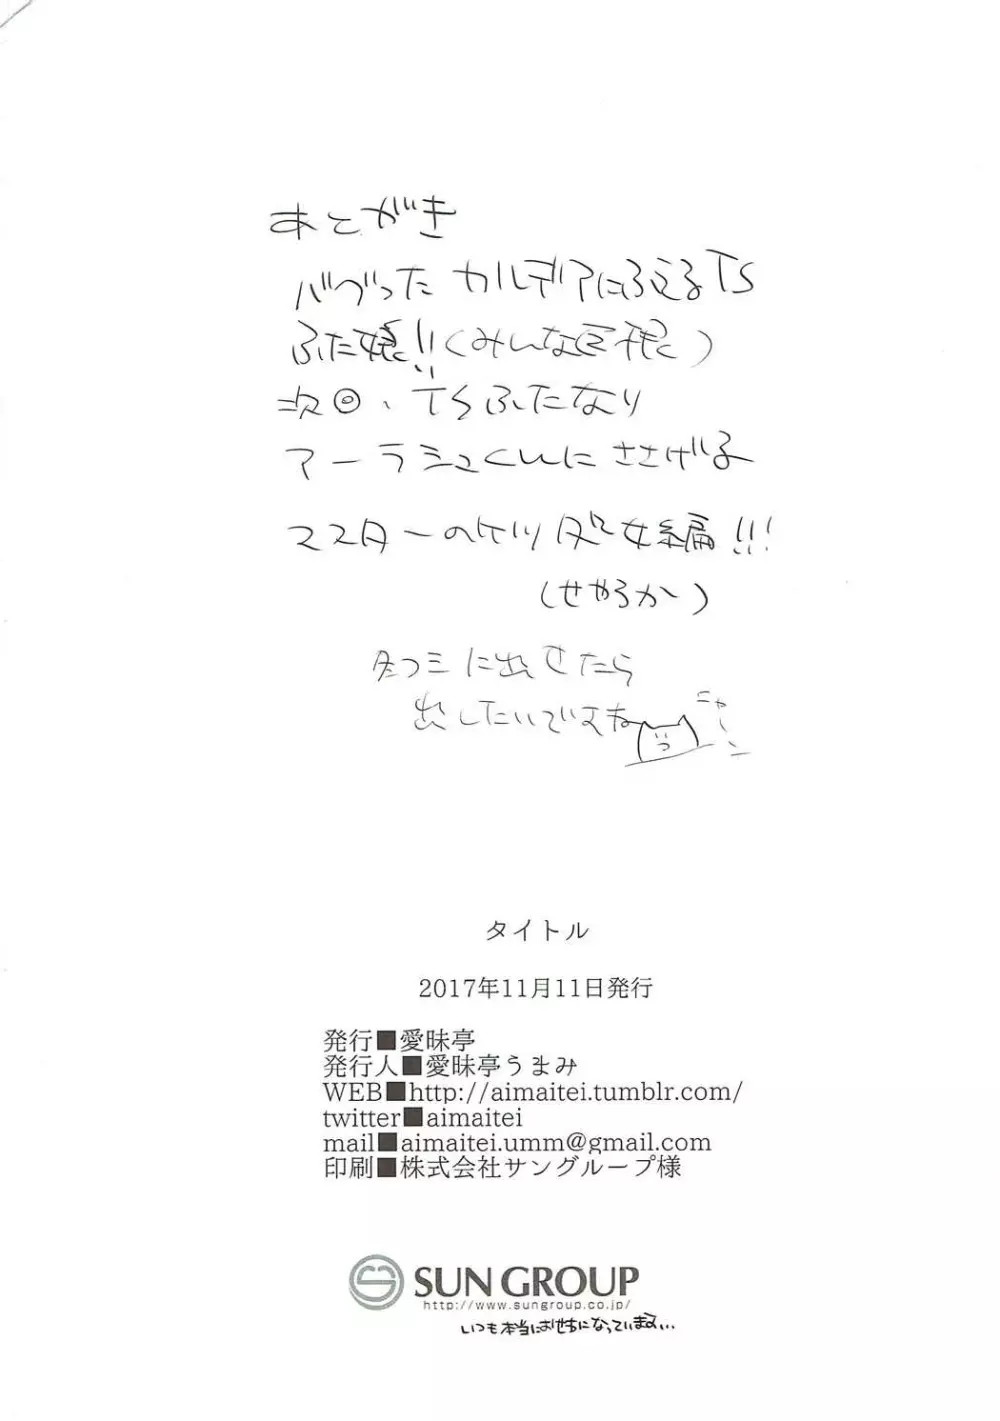 あとがき
バグったカルデアにふえるTS
ふた娘!!(みんな巨根)
次回、TSふたなり
アーラシュくんにささげる
マスターのケツ処女編!!!
(せやろか)
冬コミに出せたら
出したいですね
ニャーン
タイトル
2017年11月11日発行
発行■愛昧亭
発行人■愛昧亭うまみ
WEB■http://aimaitei.tumblr.com/
twitter■aimaitei
mail■aimaitei.umm@gmail.com
印刷■株式会社サングループ様
SUN GROUP
http://www.sungroup.co.jp/
いつも本当におせわになっています...